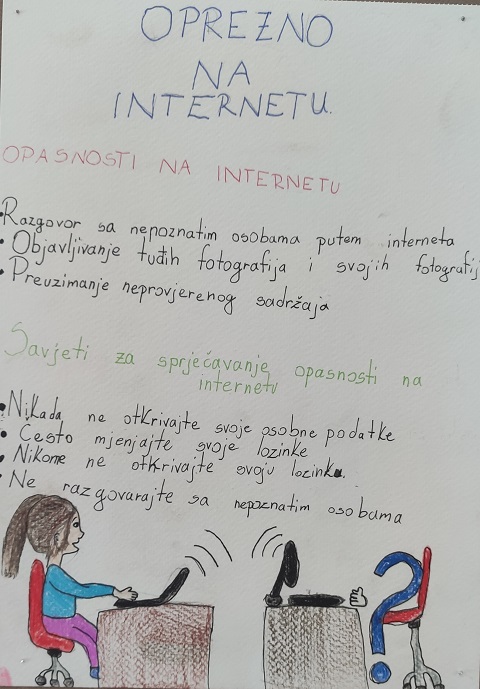 OPREZNO
NA
INTERNETU.
OPASNOSTI NA INTERNETU
• Razgovor sa nepoznatim osobama putem interneta
• Objavljivanje tuđih fotografija i svojih fotografij
• Preuzimanje neprovjerenog sadržaja
Savjeti za sprječavanje opasnosti na
internetu
• Nikada ne otkrivajte svoje osobne podatke
• Cesto mjenjajte svoje lozinke
• Nikome ne otkrivajte svoju lozinku.
• Ne razgovarajte sa nepoznatim osobama
?